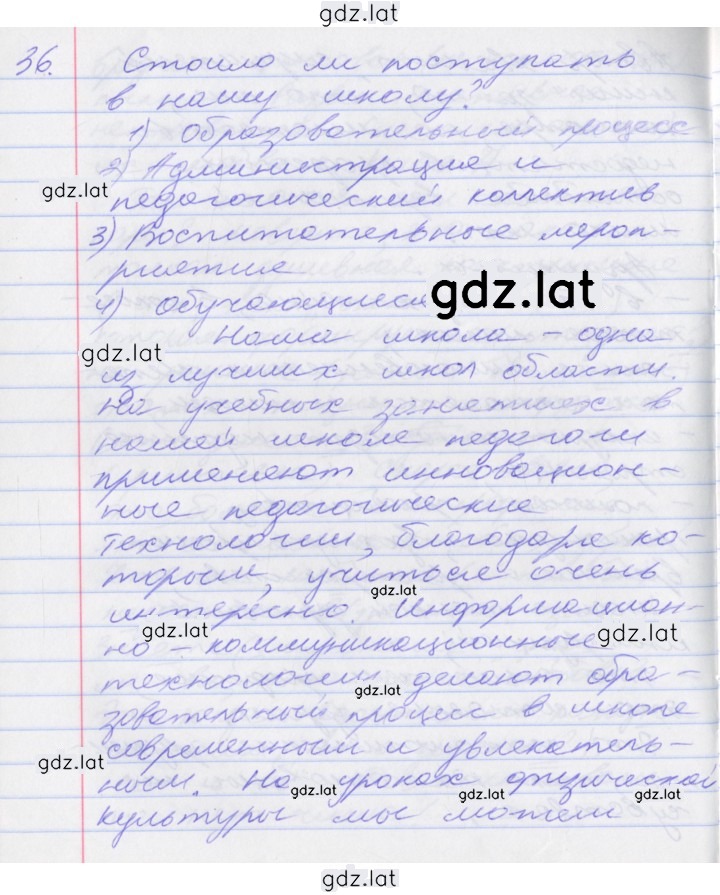 gdz.lat
36. Стоило ли поступать
в нашу школу?
1) Образовательный процесс
2) Администрация и
gdz.lat
педагогический коллектив
3) Воспитательные мероп-
риятия
4) Обучающиеся
gdz.lat
Наша школа – одна
gdz.lat
из лучших школ области.
На учебных занятиях в
нашей школе педагоги
применяют инновацион-
ные педагогические
технологии, благодаря ко-
торым, учиться очень
gdz.lat
интересно. Информацион-
gdz.lat
gdz.lat
но – коммуникационные
технологии делают обра-
gdz.lat
зовательный процесс в школе
современным и увлекатель-
gdz.lat
ным. На уроках физической
gdz.lat
gdz.lat
gdz.lat
культуры мы можем
gdz.lat